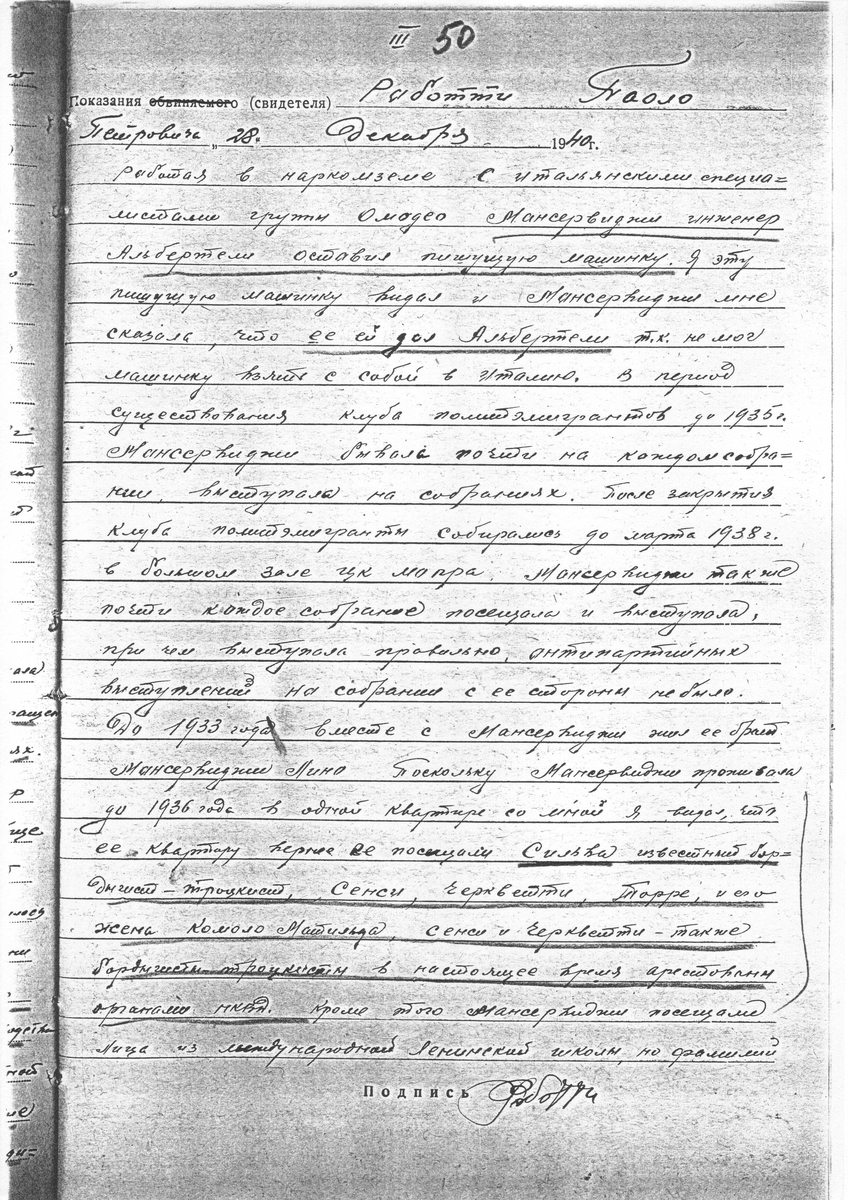 III 50
Показания обвиняемого (свидетеля) Работти Паоло
Петровича „28" Декабря 1940г.
Работая в наркомземе с итальянскими специа=
листами группы Омодео Мансервиджи инженер
Альбертели оставил пишущую машинку. Я эту
пишущую машинку видал и Мансервиджи мне
сказала, что ее ей дал Альбертели т.к. не мог
машинку взять с собой в Италию. В период
существования клуба политэмигрантов до 1935г.
Мансервиджи бывала почти на каждом собра=
нии, выступала на собраниях. После закрытия
клуба политэмигранты собирались до марта 1938г.
в большом зале ЦК мопра. Мансервиджи также
почти каждое собрание посещала и выступала,
при чем выступала правильно, антипартийных
выступлений на собрании с ее стороны не было.
До 1933 года вместе с Мансервиджи жил ее брат
Мансервиджи Лино Поскольку Мансервиджи проживала
до 1936 года в одной квартире со мной я видал, что
ее квартиру вернее ее посещали Сильва известный бор=
дигист-троцкист, Сенси, Черкветти, Торре, и его
жена Комоло Матильда, Сенси и Черкветти - также
бордигисты-троцкисты в настоящее время арестованы
органами НКВД. Кроме того Мансервиджи посещали
лица из международной Ленинской школы, но фамилий
Подпись Работти